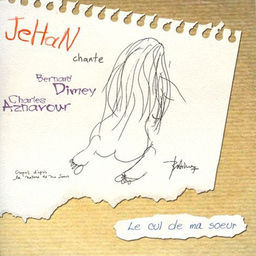 JeHaN
chante
Bernard
Dimey
Charles
Aznavour
Le cul de ma soeur